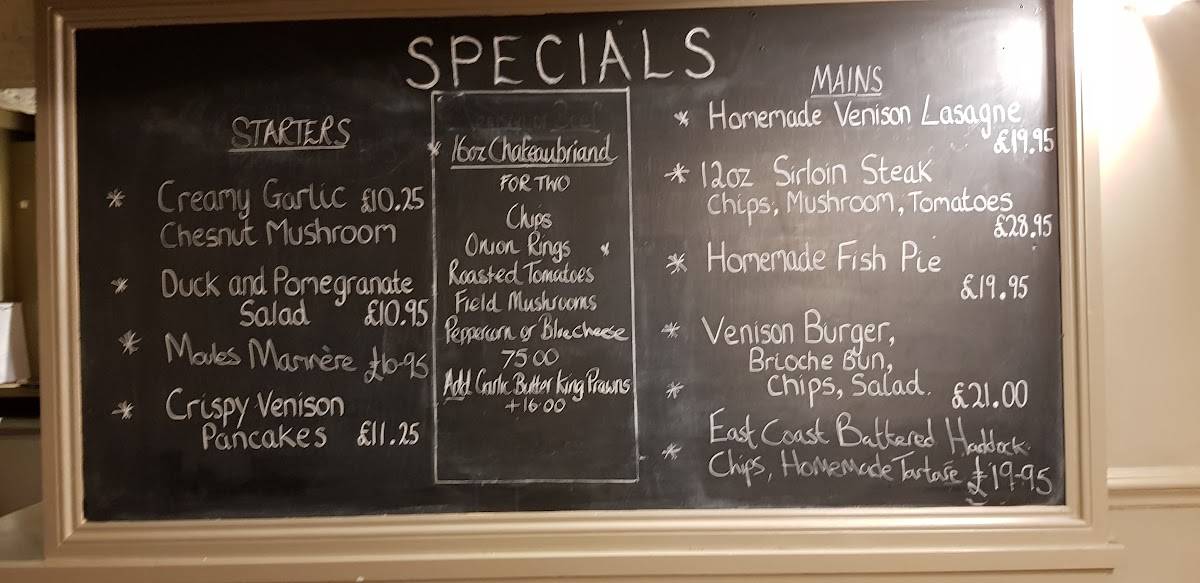 SPECIALS
STARTERS
* Creamy Garlic £10.25
Chesnut Mushroom
* Duck and Pomegranate
Salad £10.95
* Moules Marinère £10-95
* Crispy Venison
Pancakes £11.25
* 16oz Chateaubriand
FOR TWO
Chips
Onion Rings *
Roasted Tomatoes
Field Mushrooms
Peppercorn or Blue cheese
75.00
Add Garlic Butter King Prawns
+16.00
MAINS
* Homemade Venison Lasagne
£19.95
* 12oz Sirloin Steak
Chips, Mushroom, Tomatoes
£28.95
* Homemade Fish Pie
£19.95
* Venison Burger,
Brioche Bun,
* Chips, Salad. £21.00
East Coast Battered Haddock
* Chips, Homemade Tartare £19-95